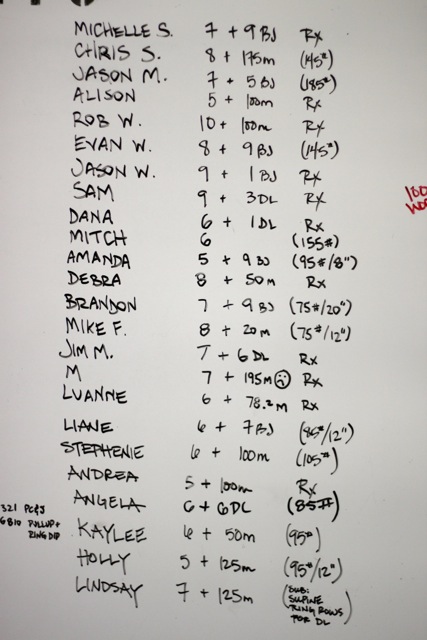 MICHELLE S. 7 + 9 BJ Rx
CHRIS S. 8 + 175m (145#)
JASON M. 7 + 5 BJ (185#)
ALISON 5 + 100m Rx
ROB W. 10 + 100m Rx
EVAN W. 8 + 9 BJ (145#)
JASON W. 9 + 1 BJ Rx
SAM 9 + 3DL Rx
DANA 6 + 1DL Rx
MITCH 6 (155#)
AMANDA 5 + 9 BJ (95#/8")
DEBRA 8 + 50m Rx
BRANDON 7 + 9 BJ (75#/20")
MIKE F. 8 + 20m (75#/12")
JIM M. 7 + 6 DL Rx
M 7 + 195m ☹ Rx
LUANNE 6 + 78.2m Rx
LIANE 6 + 7BJ (85#/12")
STEPHENIE 6 + 100m (105#)
ANDREA 5 + 100m Rx
ANGELA 6 + 6DL (85#)
KAYLEE 6 + 50m (95#)
HOLLY 5 + 125m (95#/12")
LINDSAY 7 + 125m (SUB:
SUPINE
RING ROWS
FOR DL)
321 PC&J
PULLUP+
RING DIP
100